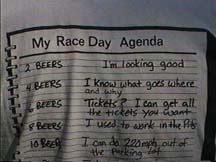 My Race Day Agenda
2 BEERS I'm looking good
4 BEERS I know what goes where
and why
6 BEERS Tickets? I can get all
the tickets you want
8 BEERS I used to work in the Pits
10 BEERS I can do 220mph out of
the parking lot